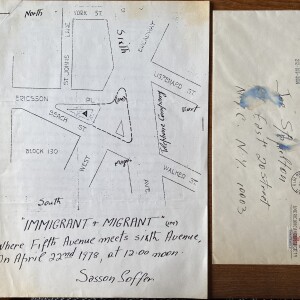 North
YORK ST.
ST. JOHNS
LANE
Sixth
BROADWAY
LISPENARD ST.
ERICSSON
BEACH
ST.
Telephone Company
BLOCK 190
WEST
WALKER ST.
South
"IMMIGRANT + MIGRANT"
Where Fifth Avenue meets sixth Avenue,
On April 22nd 1978, at 12:00 noon.
Sasson Soffer
East 20 Street
NYC N.Y. 10003